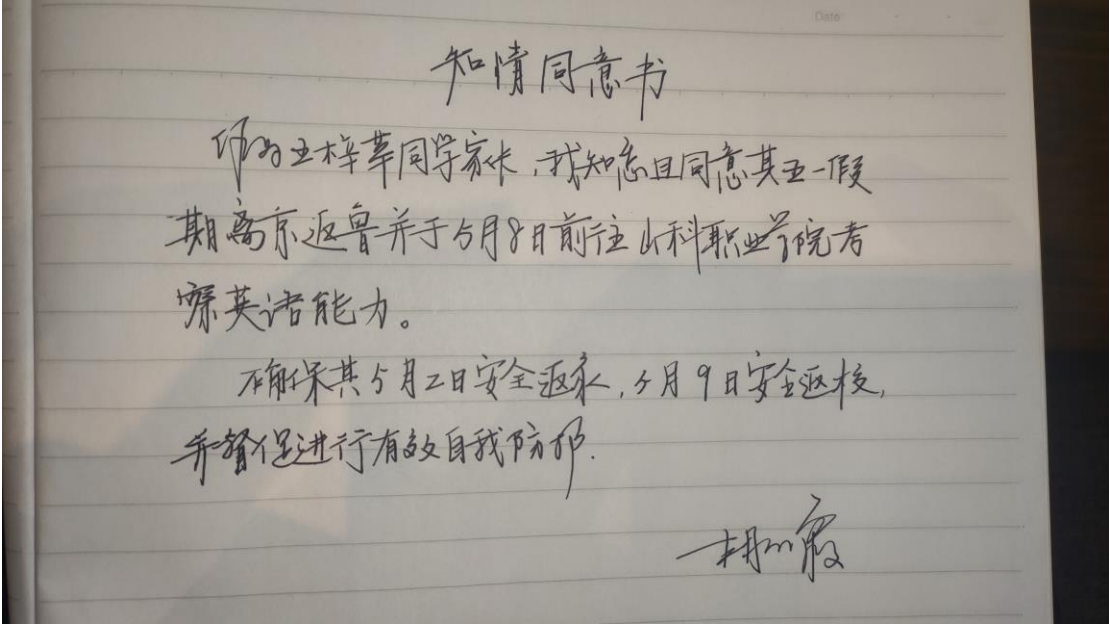 Date
知情同意书
作为王梓莘同学家长,我知悉且同意其五一假
期离京返鲁并于5月8日前往山科职业学院考
察英语能力。
确保其5月2日安全返家,5月9日安全返校,
并督促进行有效自我防护.
胡霞